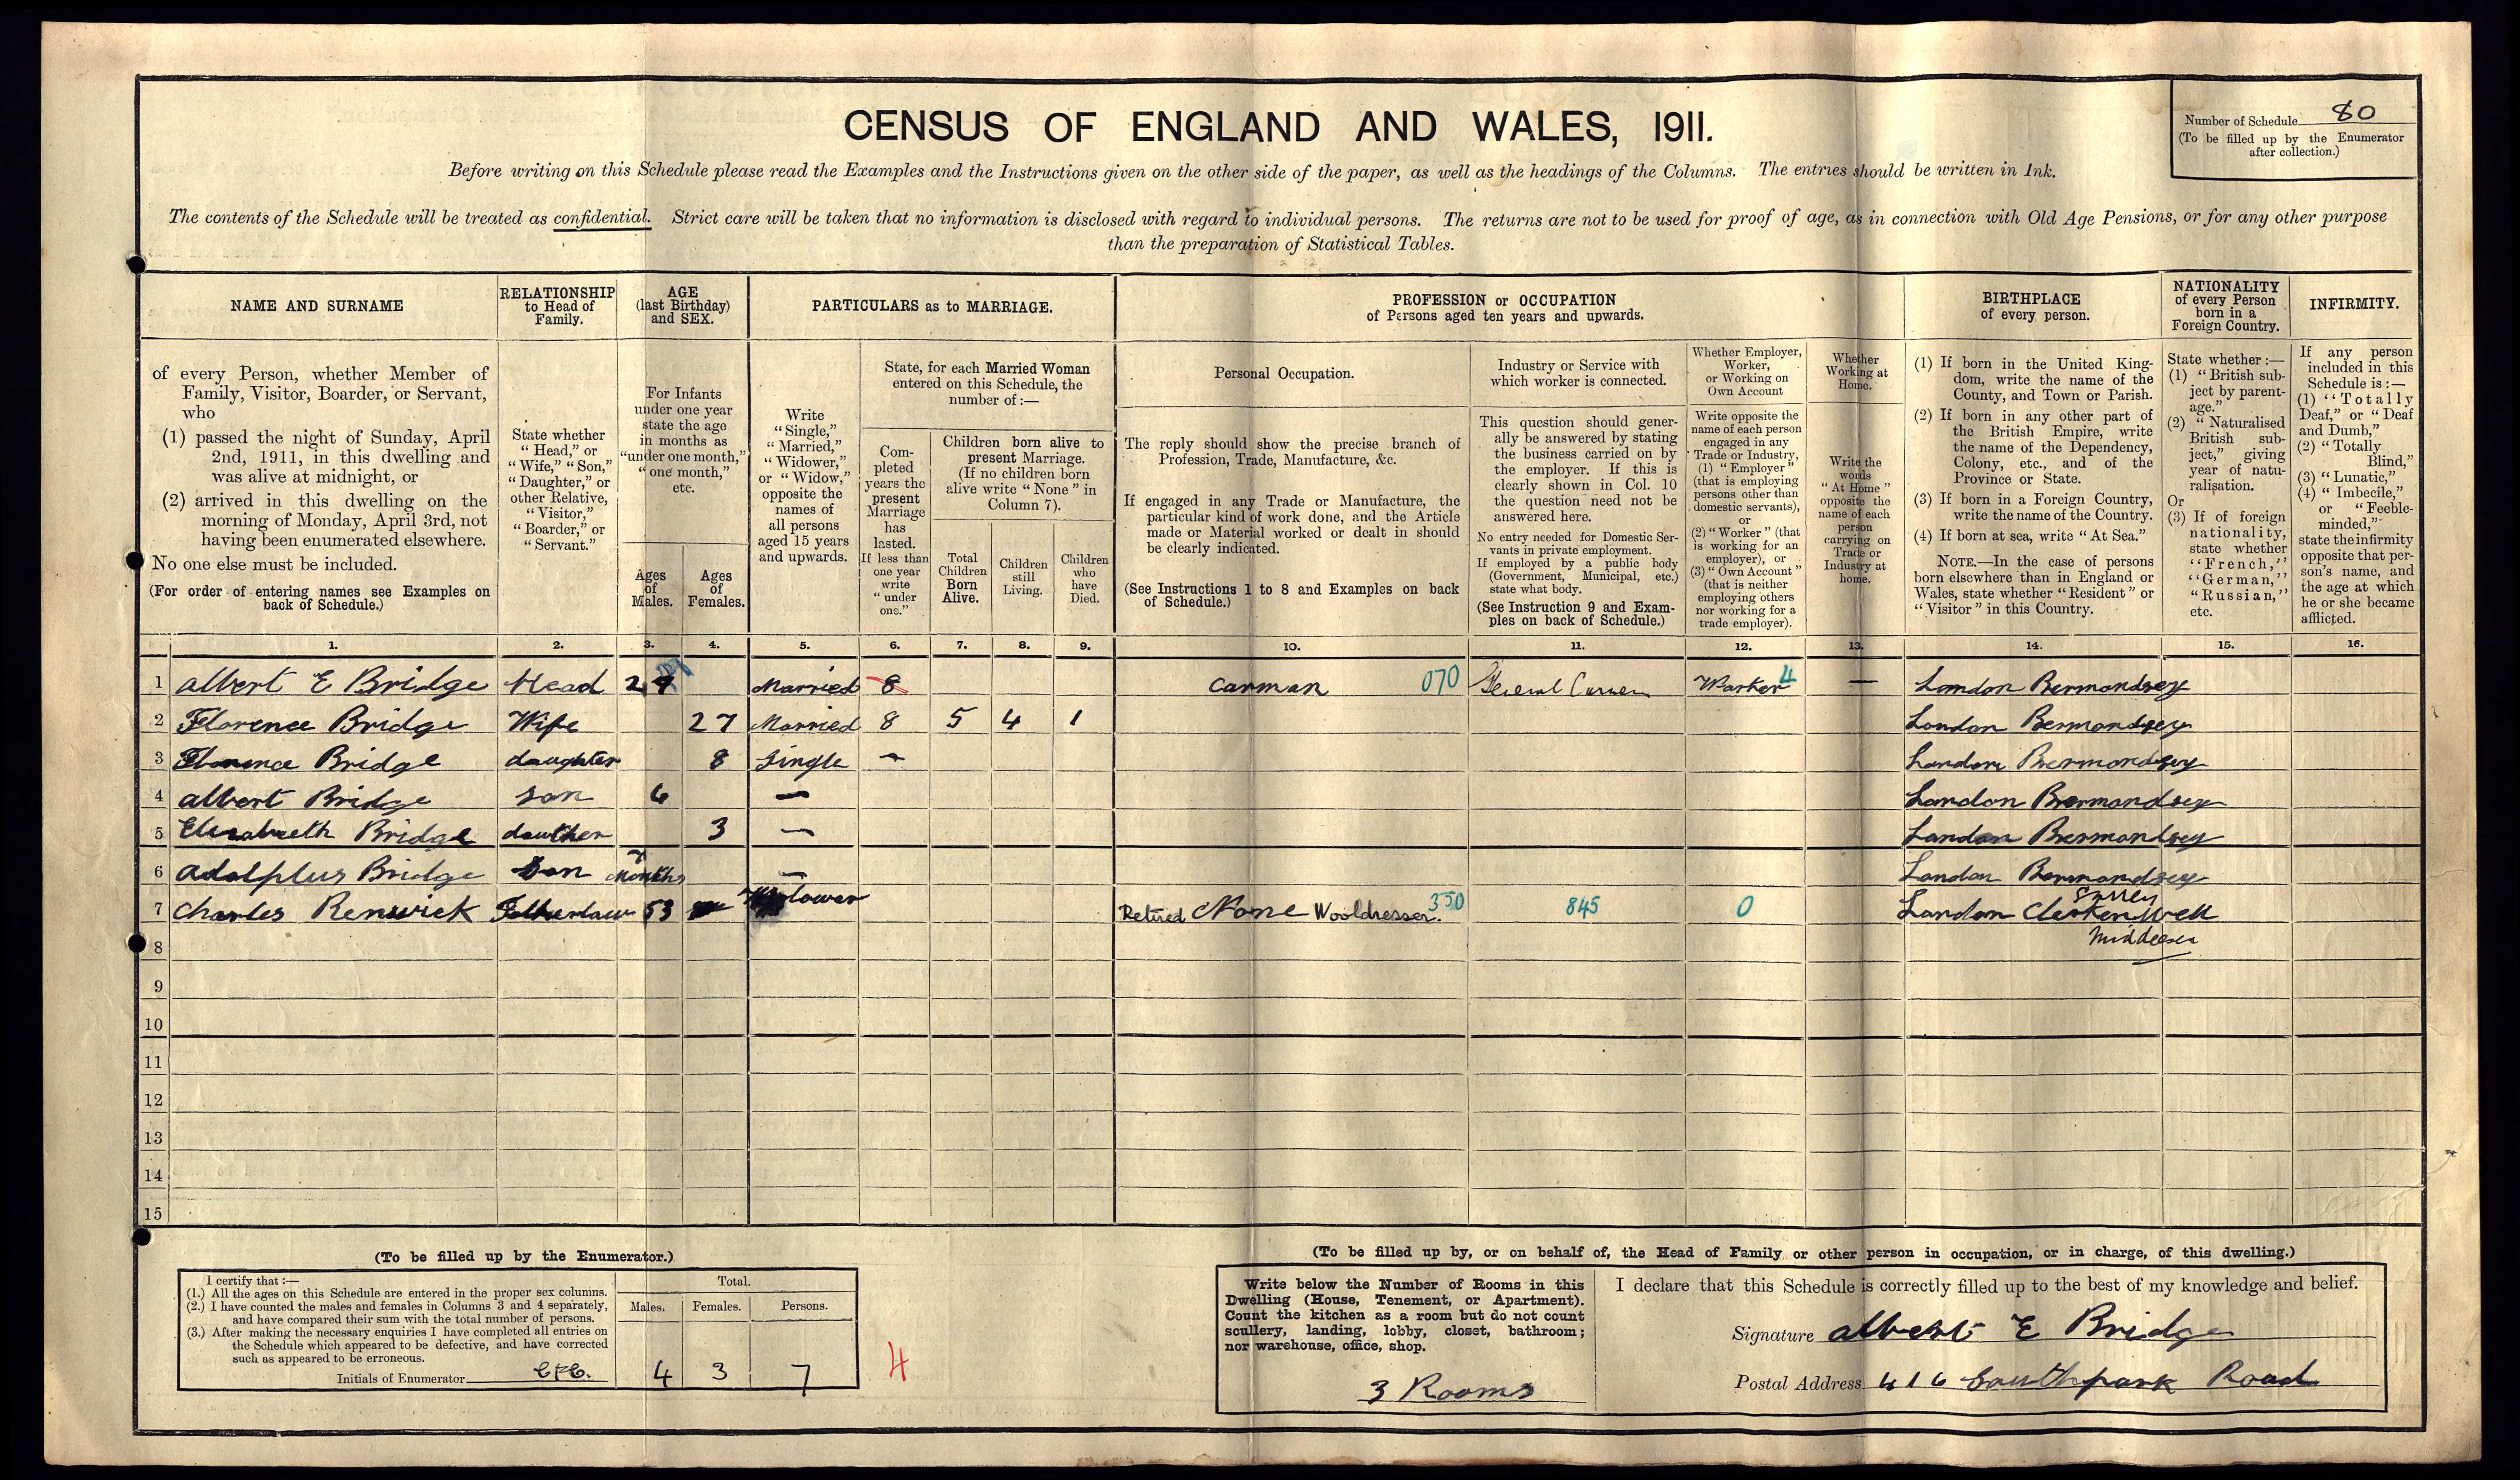 CENSUS OF ENGLAND AND WALES, 1911.
Number of Schedule 80
(To be filled up by the Enumerator
after collection.)
Before writing on this Schedule please read the Examples and the Instructions given on the other side of the paper, as well as the headings of the Columns. The entries should be written in Ink.
The contents of the Schedule will be treated as confidential. Strict care will be taken that no information is disclosed with regard to individual persons. The returns are not to be used for proof of age, as in connection with Old Age Pensions, or for any other purpose
than the preparation of Statistical Tables.
NAME AND SURNAME
of every Person, whether Member of
Family, Visitor, Boarder, or Servant,
who
(1) passed the night of Sunday, April
2nd, 1911, in this dwelling and
was alive at midnight, or
(2) arrived in this dwelling on the
morning of Monday, April 3rd, not
having been enumerated elsewhere.
No one else must be included.
(For order of entering names see Examples on
back of Schedule.)
RELATIONSHIP
to Head of
Family.
State whether
"Head," or
"Wife," "Son,"
"Daughter," or
other Relative,
"Visitor,"
"Boarder," or
"Servant."
AGE
(last Birthday)
and SEX.
For Infants
under one year
state the age
in months as
"under one month,"
"one month,"
etc.
Ages
of
Males.
Ages
of
Females.
PARTICULARS as to MARRIAGE.
Write
"Single,"
"Married,"
"Widower,"
or "Widow,"
opposite the
names of
all persons
aged 15 years
and upwards.
State, for each Married Woman
entered on this Schedule, the
number of:—
Com-
pleted
years the
present
Marriage
has
lasted.
If less than
one year
write
"under
one."
Children born alive to
present Marriage.
(If no children born
alive write "None" in
Column 7).
Total
Children
Born
Alive.
Children
still
Living.
Children
who
have
Died.
PROFESSION or OCCUPATION
of Persons aged ten years and upwards.
Personal Occupation.
The reply should show the precise branch of
Profession, Trade, Manufacture, &c.
If engaged in any Trade or Manufacture, the
particular kind of work done, and the Article
made or Material worked or dealt in should
be clearly indicated.
(See Instructions 1 to 8 and Examples on back
of Schedule.)
Industry or Service with
which worker is connected.
This question should gener-
ally be answered by stating
the business carried on by
the employer. If this is
clearly shown in Col. 10
the question need not be
answered here.
No entry needed for Domestic Ser-
vants in private employment.
If employed by a public body
(Government, Municipal, etc.)
state what body.
(See Instruction 9 and Exam-
ples on back of Schedule.)
Whether Employer,
Worker,
or Working on
Own Account
Write opposite the
name of each person
engaged in any
Trade or Industry,
(1) "Employer"
(that is employing
persons other than
domestic servants),
or
(2) "Worker" (that
is working for an
employer), or
(3) "Own Account"
(that is neither
employing others
nor working for a
trade employer).
Whether
Working at
Home.
Write the
words
"At Home"
opposite the
name of each
person
carrying on
Trade or
Industry at
home.
BIRTHPLACE
of every person.
(1) If born in the United King-
dom, write the name of the
County, and Town or Parish.
(2) If born in any other part of
the British Empire, write
the name of the Dependency,
Colony, etc., and of the
Province or State.
(3) If born in a Foreign Country,
write the name of the Country.
(4) If born at sea, write "At Sea."
NOTE.—In the case of persons
born elsewhere than in England or
Wales, state whether "Resident" or
"Visitor" in this Country.
NATIONALITY
of every Person
born in a
Foreign Country.
State whether:—
(1) "British sub-
ject by parent-
age."
(2) "Naturalised
British sub-
ject," giving
year of natu-
ralisation.
Or
(3) If of foreign
nationality,
state whether
"French,"
"German,"
"Russian,"
etc.
INFIRMITY.
If any person
included in this
Schedule is:—
(1) "Totally
Deaf," or "Deaf
and Dumb,"
(2) "Totally
Blind,"
(3) "Lunatic,"
(4) "Imbecile,"
or "Feeble-
minded,"
state the infirmity
opposite that per-
son's name, and
the age at which
he or she became
afflicted.
1. 2. 3. 4. 5. 6. 7. 8. 9. 10. 11. 12. 13. 14. 15. 16.
1 Albert E Bridge Head 29 Married 8 Carman 070 General Worker 4 — London Bermondsey
2 Florence Bridge Wife 27 Married 8 5 4 1 London Bermondsey
3 Florence Bridge daughter 8 Single — London Bermondsey
4 Albert Bridge son 6 — London Bermondsey
5 Elesabeeth Bridge dauther 3 — London Bermondsey
6 Adolphus Bridge Son Months — London Bermondsey
Surrey
7 Charles Renwick Fatherlaw 53 Widower Retired None Wooldresser. 350 845 0 London Clerkenwell
Middlesex
8
9
10
11
12
13
14
15
(To be filled up by the Enumerator.)
I certify that:—
(1.) All the ages on this Schedule are entered in the proper sex columns.
(2.) I have counted the males and females in Columns 3 and 4 separately,
and have compared their sum with the total number of persons.
(3.) After making the necessary enquiries I have completed all entries on
the Schedule which appeared to be defective, and have corrected
such as appeared to be erroneous.
Initials of Enumerator
Total.
Males. Females. Persons.
4 3 7
4
(To be filled up by, or on behalf of, the Head of Family or other person in occupation, or in charge, of this dwelling.)
Write below the Number of Rooms in this
Dwelling (House, Tenement, or Apartment).
Count the kitchen as a room but do not count
scullery, landing, lobby, closet, bathroom;
nor warehouse, office, shop.
3 Rooms
I declare that this Schedule is correctly filled up to the best of my knowledge and belief.
Signature Albert E Bridge
Postal Address 416 Southpark Road